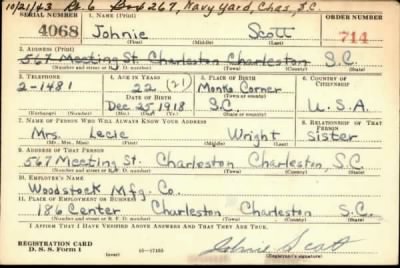 10/21/43 Rt. 6 Box 267, Navy Yard, Chas, S.C.
SERIAL NUMBER 1. NAME (Print) ORDER NUMBER
4068 Johnie Scott 714
(First) (Middle) (Last)
2. ADDRESS (Print)
567 Meeting St. Charleston Charleston S.C.
(Number and street or R. F. D. number) (Town) (County) (State)
3. TELEPHONE 4. AGE IN YEARS 5. PLACE OF BIRTH 6. COUNTRY OF CITIZENSHIP
2-1481 22 (21) Monks Corner
DATE OF BIRTH (Town or county)
Dec. 25, 1918 S.C. U.S.A.
(Exchange) (Number) (Mo.) (Day) (Yr.) (State or country)
7. NAME OF PERSON WHO WILL ALWAYS KNOW YOUR ADDRESS 8. RELATIONSHIP OF THAT PERSON
Mrs. Lecie Wright Sister
(Mr., Mrs., Miss) (First) (Middle) (Last)
9. ADDRESS OF THAT PERSON
567 Meeting St. Charleston Charleston, S.C
(Number and street or R. F. D. number) (Town) (County) (State)
10. EMPLOYER'S NAME
Woodstock Mfg. Co.
11. PLACE OF EMPLOYMENT OR BUSINESS
186 Center Charleston Charleston S.C.
(Number and street or R. F. D. number) (Town) (County) (State)
I AFFIRM THAT I HAVE VERIFIED ABOVE ANSWERS AND THAT THEY ARE TRUE.
REGISTRATION CARD
D. S. S. Form 1 Johnie Scott
(Registrant's signature)